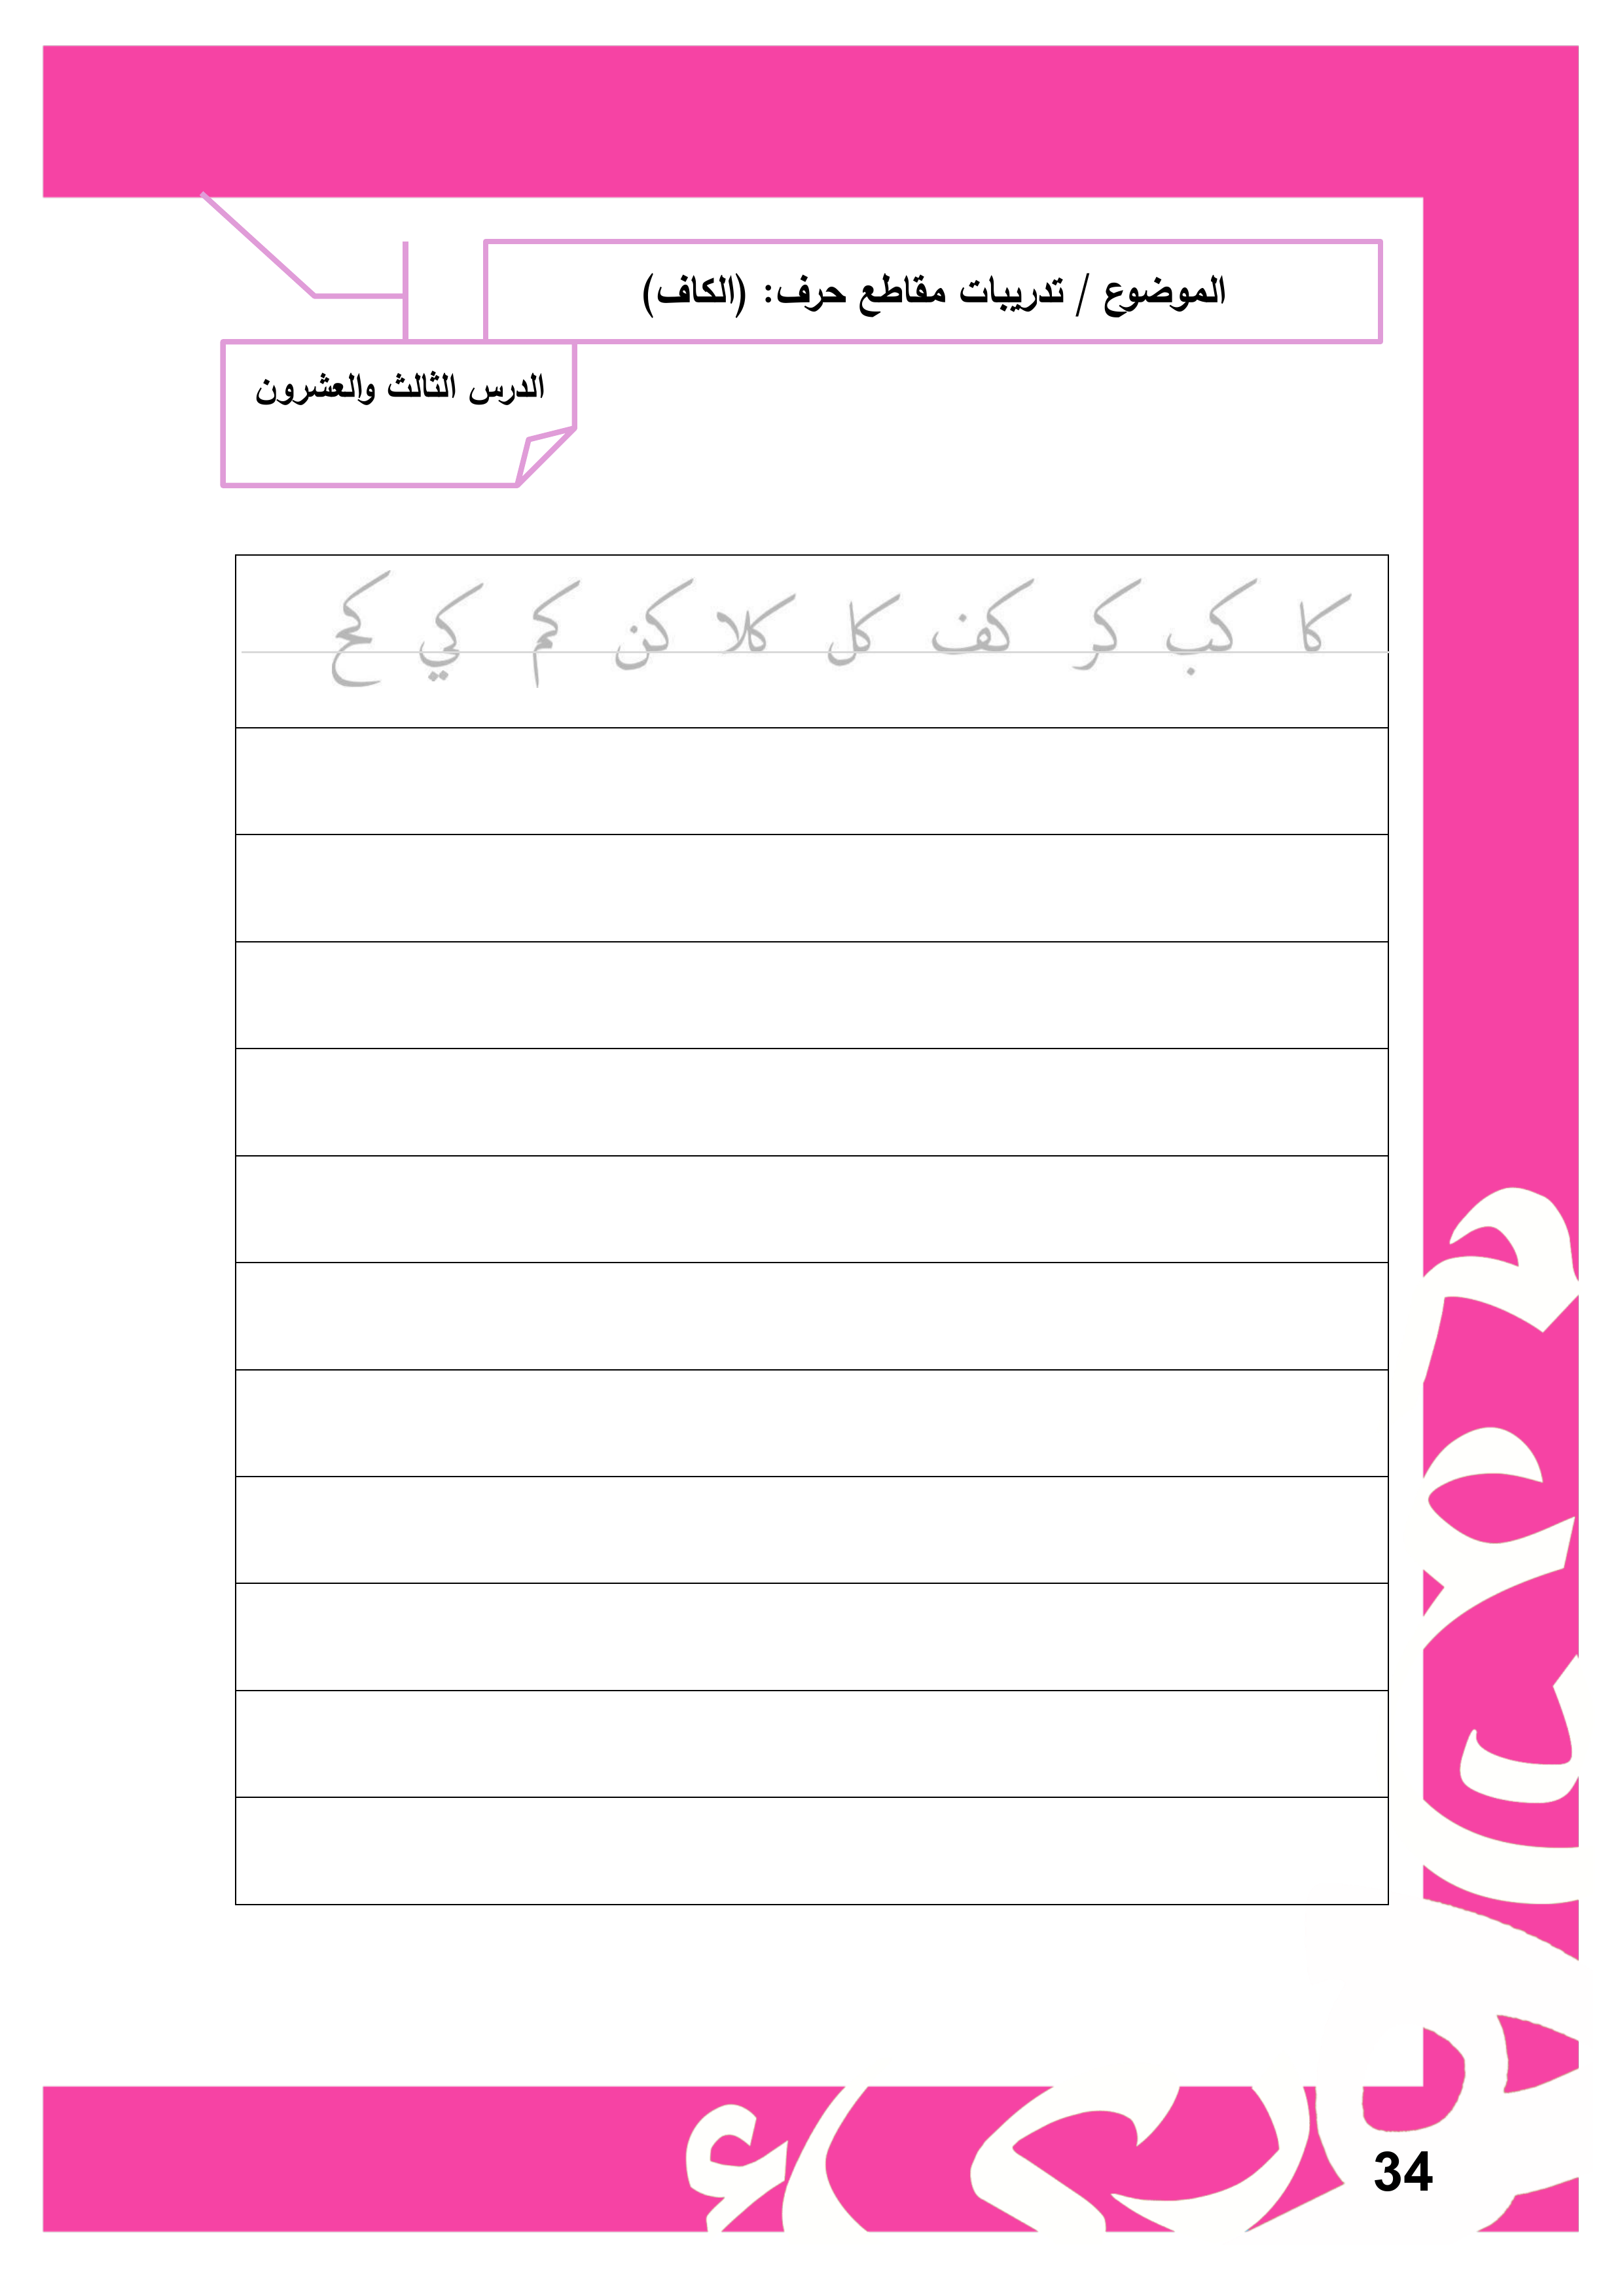 الموضوع / تدريبات مقاطع حرف: (الكاف)
الدرس الثالث والعشرون
كا كب كر كف كل كلا كن كم كي كح
34